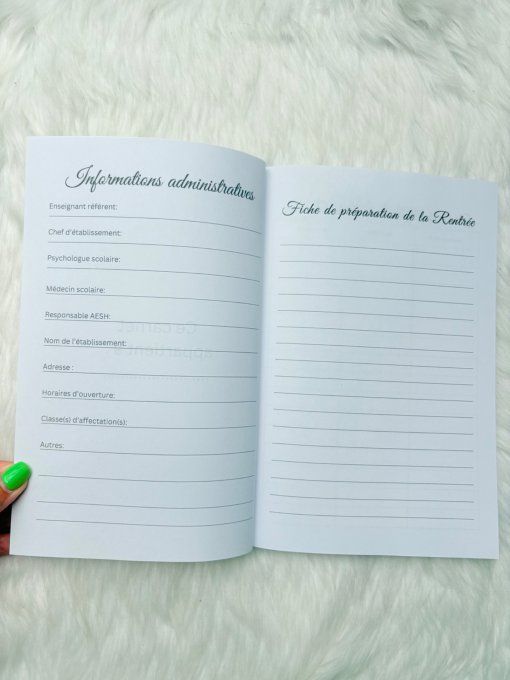 Informations administratives
Enseignant référent:
Chef d'établissement:
Psychologue scolaire:
Médecin scolaire:
Responsable AESH:
Nom de l'établissement:
Adresse :
Horaires d'ouverture:
Classe(s) d'affectation(s):
Autres:
Ce carnet
appartient à
Fiche de préparation de la Rentrée